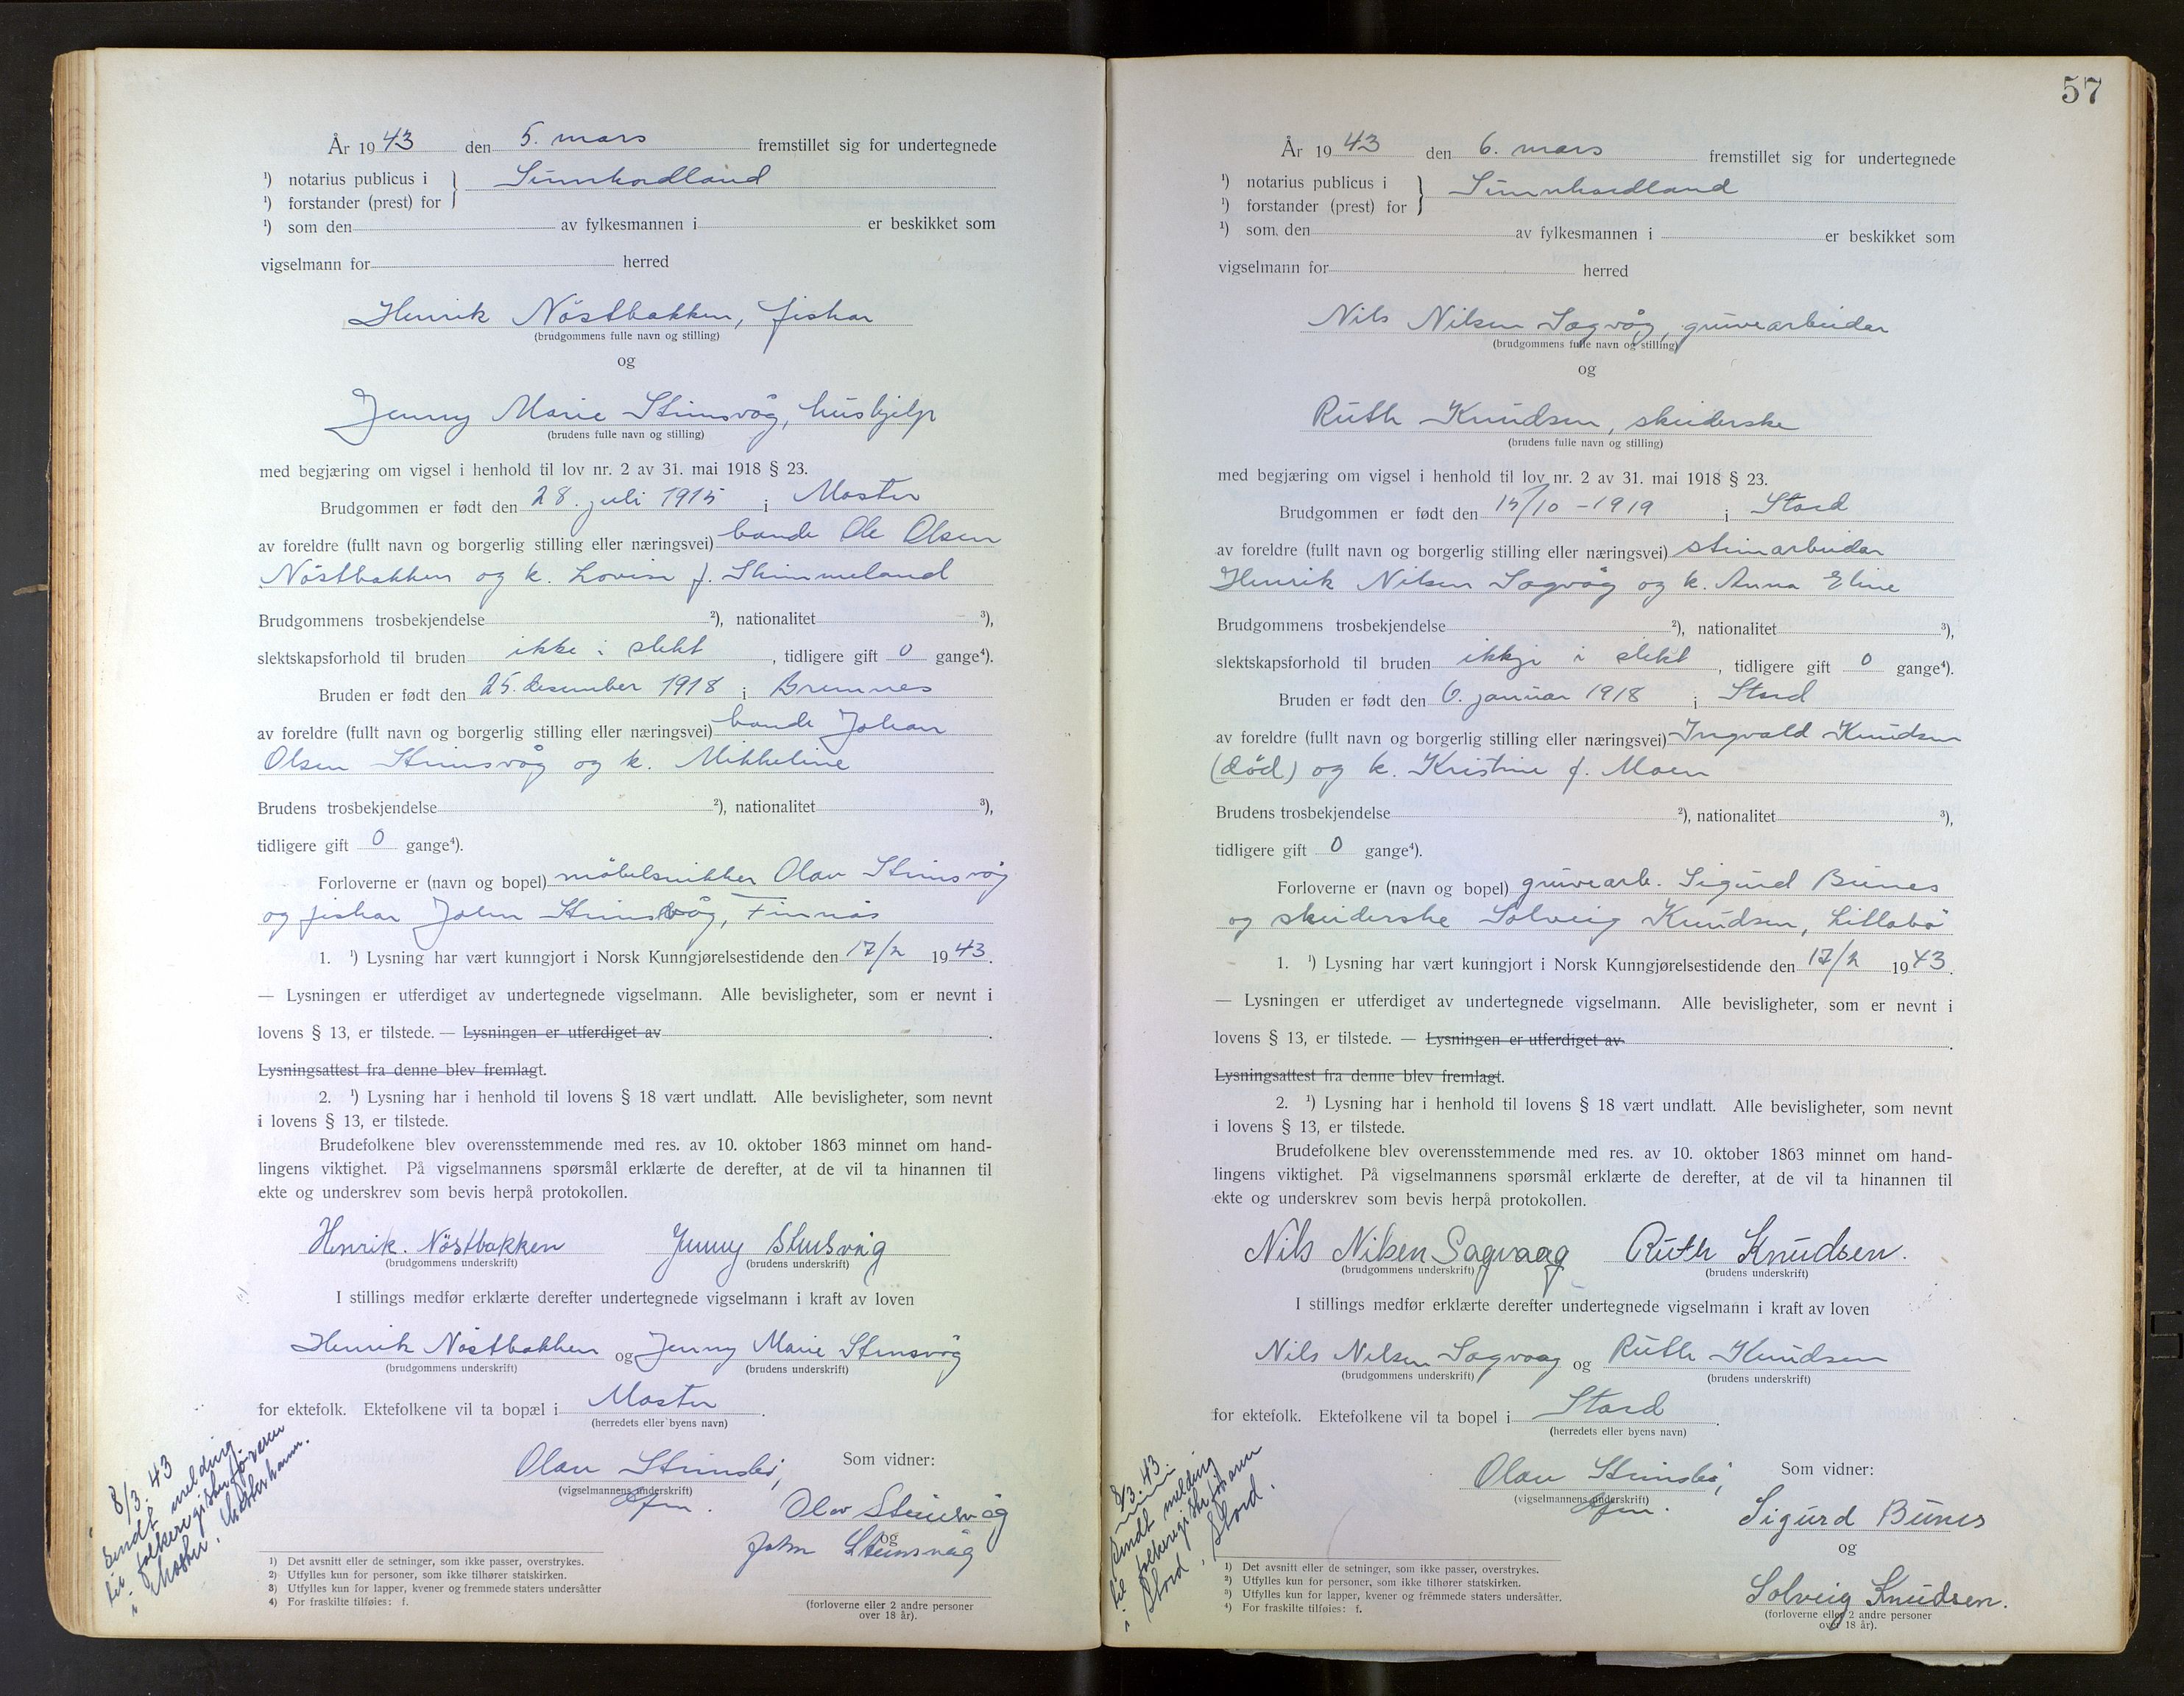 År 1943 den 5. mars fremstillet sig for undertegnede
¹) notarius publicus i } Sunnhordland
¹) forstander (prest) for
¹) som den av fylkesmannen i er beskikket som
vigselmann for herred
Henrik Nöstbakken, fiskar
(brudgommens fulle navn og stilling)
og
Jenny Marie Steinsvåg, hushjelp
(brudens fulle navn og stilling)
med begjæring om vigsel i henhold til lov nr. 2 av 31. mai 1918 § 23.
Brudgommen er født den 28. juli 1915 i Moster
av foreldre (fullt navn og borgerlig stilling eller næringsvei) bonde Ole Olsen
Nöstbakken og k. Lovise f. Skimmeland
Brudgommens trosbekjendelse ²), nationalitet ³),
slektskapsforhold til bruden ikke i slekt, tidligere gift 0 gange⁴).
Bruden er født den 25. desember 1918 i Bremnes
av foreldre (fullt navn og borgerlig stilling eller næringsvei) bonde Johan
Olsen Steinsvåg og k. Mikkeline
Brudens trosbekjendelse ²), nationalitet ³),
tidligere gift 0 gange⁴).
Forloverne er (navn og bopel) möbelsnikker Olav Steinsvåg
og fiskar John Steinsvåg, Finnås
1. ¹) Lysning har vært kunngjort i Norsk Kunngjørelsestidende den 17/2 1943.
— Lysningen er utferdiget av undertegnede vigselmann. Alle bevisligheter, som er nevnt i
lovens § 13, er tilstede. — Lysningen er utferdiget av .
Lysningsattest fra denne blev fremlagt.
2. ¹) Lysning har i henhold til lovens § 18 vært undlatt. Alle bevisligheter, som nevnt
i lovens § 13, er tilstede.
Brudefolkene blev overensstemmende med res. av 10. oktober 1863 minnet om hand-
lingens viktighet. På vigselmannens spørsmål erklærte de derefter, at de vil ta hinannen til
ekte og underskrev som bevis herpå protokollen.
Henrik. Nöstbakken Jenny Steinsvåg
(brudgommens underskrift) (brudens underskrift)
I stillings medfør erklærte derefter undertegnede vigselmann i kraft av loven
Henrik Nöstbakken og Jenny Marie Steinsvåg
(brudgommens underskrift) (brudens underskrift)
for ektefolk. Ektefolkene vil ta bopæl i Moster.
(herredets eller byens navn)
Olav Steinsbö, Som vidner:
(vigselmannens underskrift)
Olav Steinsvåg
og
John Steinsvåg
(forloverne eller 2 andre personer
over 18 år).
8/3. 43
Sendt melding
til folkeregisterföraren
i Moster, Mosterhamn.
1) Det avsnitt eller de setninger, som ikke passer, overstrykes.
2) Utfylles kun for personer, som ikke tilhører statskirken.
3) Utfylles kun for lapper, kvener og fremmede staters undersåtter
4) For fraskilte tilføies: f.
57
År 1943 den 6. mars fremstillet sig for undertegnede
¹) notarius publicus i } Sunnhordland
¹) forstander (prest) for
¹) som den av fylkesmannen i er beskikket som
vigselmann for herred
Nils Nilsen Sagvåg, gruvearbeidar
(brudgommens fulle navn og stilling)
og
Ruth Knudsen, skreddarske
(brudens fulle navn og stilling)
med begjæring om vigsel i henhold til lov nr. 2 av 31. mai 1918 § 23.
Brudgommen er født den 15/10 - 1919 i Stord
av foreldre (fullt navn og borgerlig stilling eller næringsvei) steinarbeidar
Henrik Nilsen Sagvåg og k. Anna Eline
Brudgommens trosbekjendelse ²), nationalitet ³),
slektskapsforhold til bruden ikkje i slekt, tidligere gift 0 gange⁴).
Bruden er født den 6. januar 1918 i Stord
av foreldre (fullt navn og borgerlig stilling eller næringsvei) Ingvald Knudsen
(död) og k. Kristine f. Moen
Brudens trosbekjendelse ²), nationalitet ³),
tidligere gift 0 gange⁴).
Forloverne er (navn og bopel) gruvearb. Sigurd Bunes
og Solveig Knudsen, Litlabö
1. ¹) Lysning har vært kunngjort i Norsk Kunngjørelsestidende den 17/2 1943.
— Lysningen er utferdiget av undertegnede vigselmann. Alle bevisligheter, som er nevnt i
lovens § 13, er tilstede. — Lysningen er utferdiget av .
Lysningsattest fra denne blev fremlagt.
2. ¹) Lysning har i henhold til lovens § 18 vært undlatt. Alle bevisligheter, som nevnt
i lovens § 13, er tilstede.
Brudefolkene blev overensstemmende med res. av 10. oktober 1863 minnet om hand-
lingens viktighet. På vigselmannens spørsmål erklærte de derefter, at de vil ta hinannen til
ekte og underskrev som bevis herpå protokollen.
Nils Nilsen Sagvaag Ruth Knudsen.
(brudgommens underskrift) (brudens underskrift)
I stillings medfør erklærte derefter undertegnede vigselmann i kraft av loven
Nils Nilsen Sagvaag og Ruth Knudsen
(brudgommens underskrift) (brudens underskrift)
for ektefolk. Ektefolkene vil ta bopel i Stord.
(herredets eller byens navn)
Olav Steinsbö, Som vidner:
(vigselmannens underskrift)
Sigurd Bunes
og
Solveig Knudsen.
(forloverne eller 2 andre personer
over 18 år).
8/3. 43.
Sendt melding
til folkeregisterföraren
i Stord, Stord.
1) Det avsnitt eller de setninger, som ikke passer, overstrykes.
2) Utfylles kun for personer, som ikke tilhører statskirken.
3) Utfylles kun for lapper, kvener og fremmede staters undersåtter.
4) For fraskilte tilføies: f.